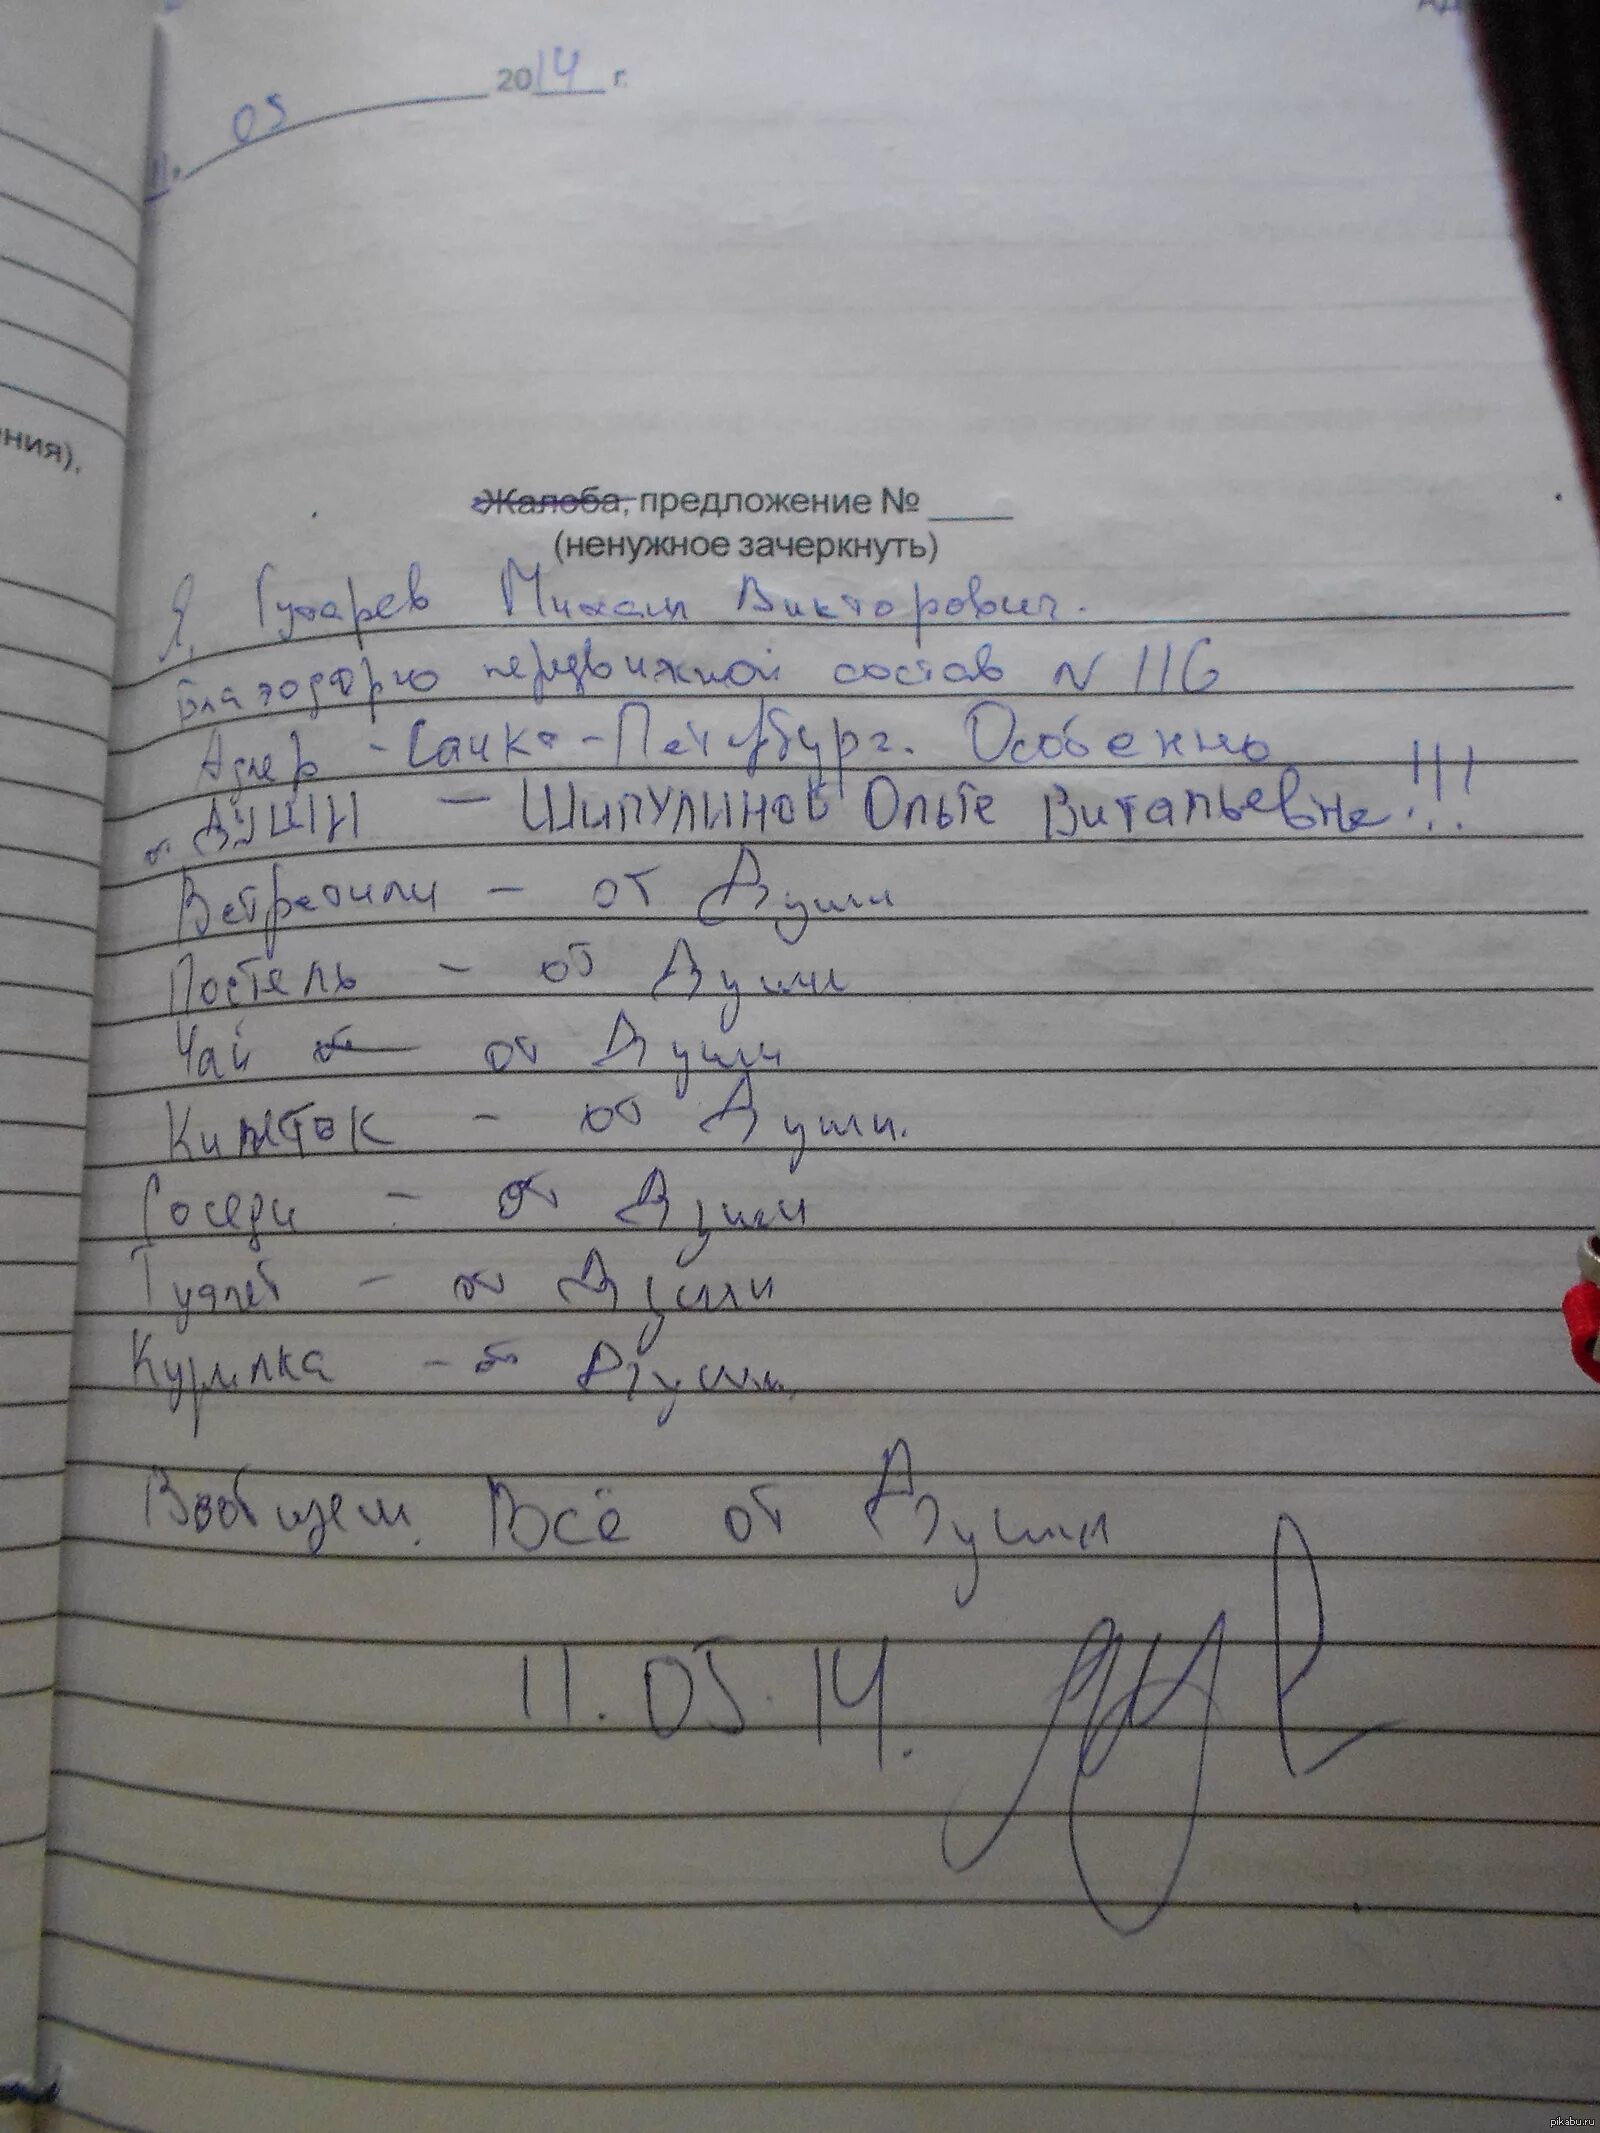 11. 05 2014 г.
ния),
Жалоба, предложение № ____
(ненужное зачеркнуть)
Я, Гухарев Михаил Викторович.
Благодорю передвижной состав N 116
Адлер - Санкт-Петербург. Особенно
от ДУШИ — ШИПУЛИНОЙ Ольге Витальевне!!!
Встретили - от Души
Постель - от Души
Чай от от Души
Кипяток - от Души.
Соседи - от Души
Туалет - от Души
Курилка - от Души.
Вообщем. Всё от Души
11.05.14.
pikabu.ru